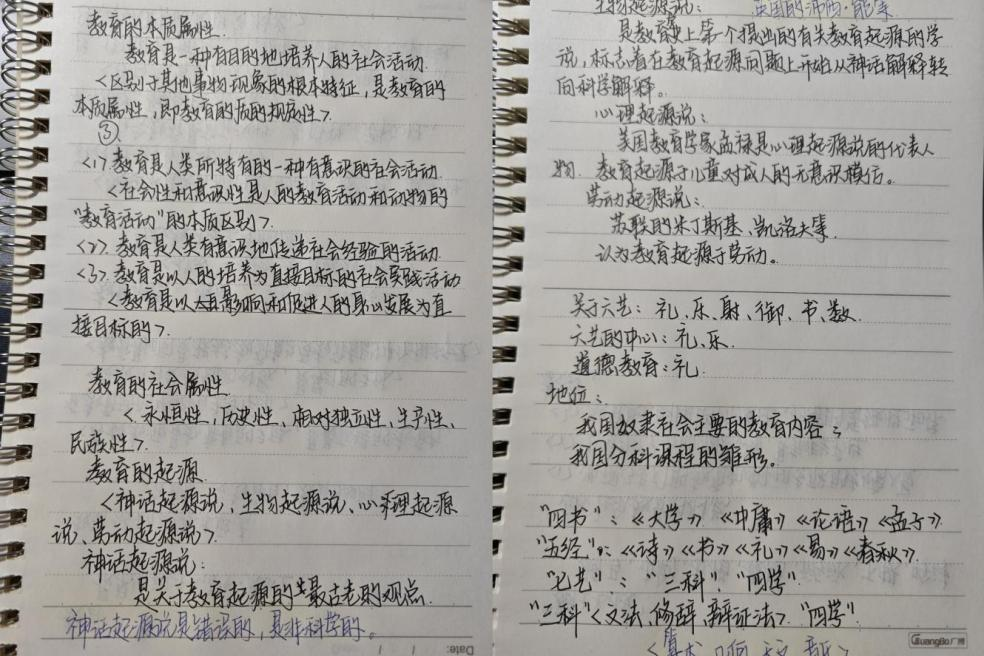 教育的本质属性
教育是一种有目的地培养人的社会活动
<区别于其他事物现象的根本特征,是教育的
本质属性,即教育的质的规定性>.
③
<1>教育是人类所特有的一种有意识的社会活动
<社会性和意识性是人的教育活动和动物的
“教育活动”的本质区别>.
<2>教育是人类有意识地传递社会经验的活动
<3>教育是以人的培养为直接目标的社会实践活动
<教育是以影响和促进人的身心发展为直
接目标的>.
教育的社会属性
<永恒性,历史性、相对独立性、生产性、
民族性>.
教育的起源
<神话起源说、生物起源说、心理起源
说、劳动起源说>.
神话起源说:
是关于教育起源的最古老的观点.
神话起源说是错误的,是非科学的。
Date:
生物起源说: 英国的沛西·能等
是教育史上第一个提出的有关教育起源的学
说,标志着在教育起源问题上开始从神话解释转
向科学解释。
心理起源说:
美国教育学家孟禄是心理起源说的代表人
物. 教育起源于儿童对成人的无意识模仿。
劳动起源说:
苏联的米丁斯基、凯洛夫等.
认为教育起源于劳动。
关于六艺:礼、乐、射、御、书、数.
六艺的中心:礼、乐.
道德教育:礼.
地位:
我国奴隶社会主要的教育内容;
我国分科课程的雏形。
“四书”:《大学》《中庸》《论语》《孟子》
“五经”:《诗》《书》《礼》《易》《春秋》
“七艺”:“三科”.“四学”
“三科”<文法、修辞、辩证法>.“四学”
GuangBo 广博